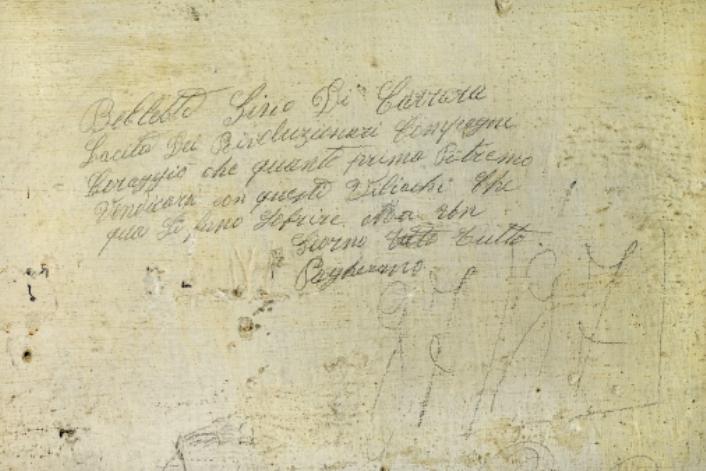 Lirio Di Carrara
Lacità Dei Rivoluzionari Compagni
Coraggio che quanto prima Potremo
Vendicare con questi Viliachi che
qua Ci fano Sofrire Ma Un
Giorno tuto tutto
Pagherano